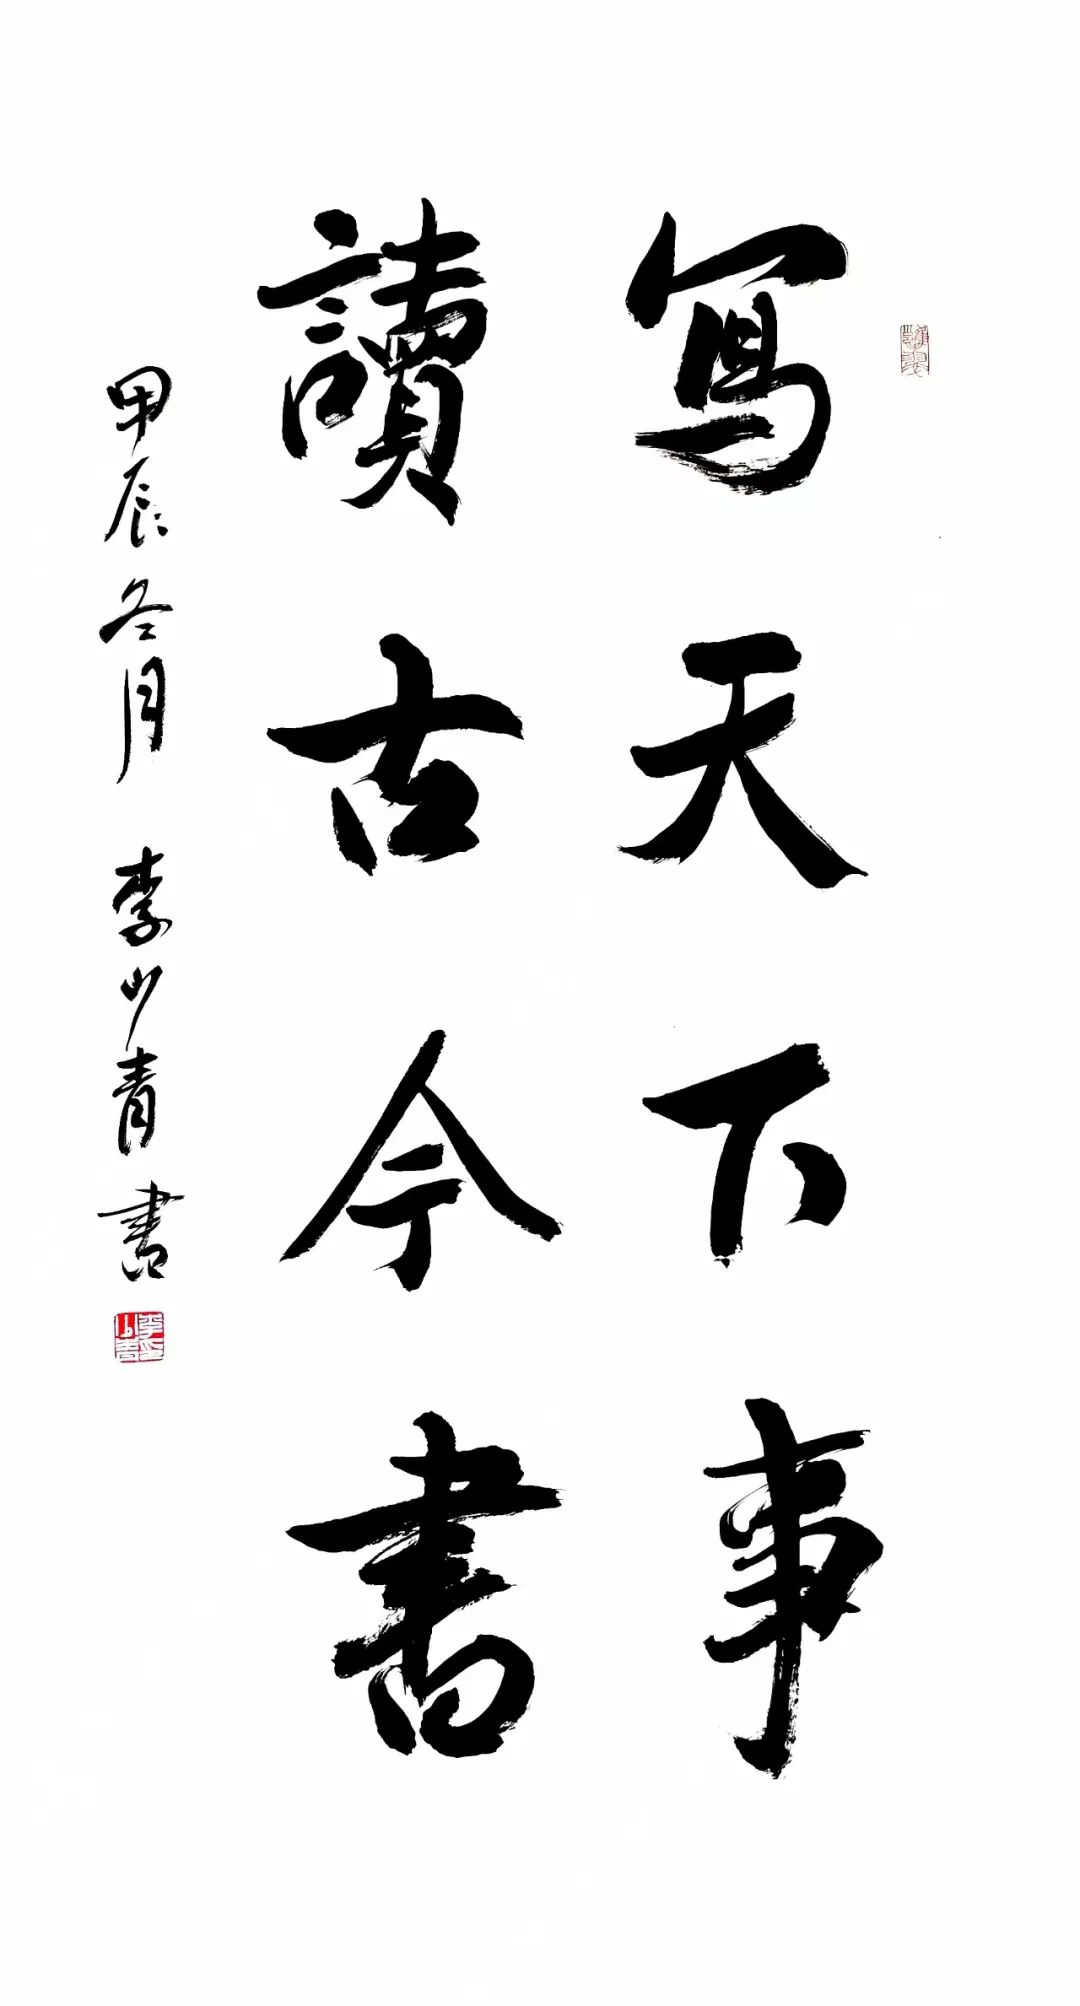 寫天下事
讀古今書
甲辰冬月 李少青書